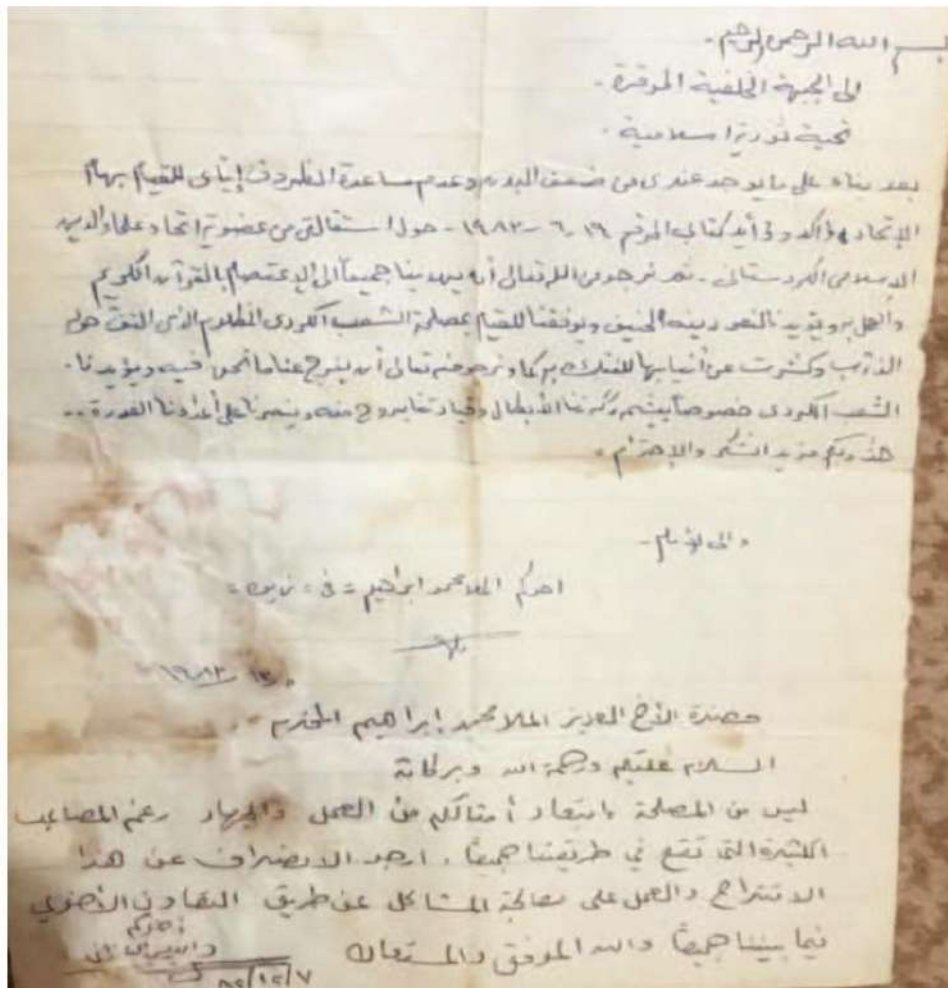 بسم الله الرحمن الرحيم -
الى الجبهة الخلفية الموقرة .
تحية ثورية اسلامية .
بعد بناء على ما يوجد عندى من ضعف البدن وعدم مساعدة الظروف إيّاى للقيام بمهام
الإتحاد أؤكد وأؤيد كتابى المرقم ١٩ - ٦ - ١٩٨٢ - حول استقالتى من عضوية اتحاد علماء الدين
الاسلامى الكردستانى . ثم نرجو من الله تعالى أن يهدينا جميعاً الى الإعتصام بالقرآن الكريم
والعمل به ويؤيدنا لنصر دينه الحنيف ويوفقنا للقيام بمصلحة الشعب الكردى المظلوم الذى التفت حوله
الذئاب وكشرت عن أنيابها للفتك به كما ونرجو منه تعالى أن يفرج عنا ما نحن فيه ويؤيدنا .
الشعب الكردى خصوصاً بيشمرگتنا الأبطال وقيادتنا بروح منه وينصرنا على أعدائنا الغدرة ..
هذا ولكم مزيد الشكر والإحترام .
اخوكم الملا محمد ابراهيم - فى
حضرة الأخ العزيز الملا محمد إبراهيم المحترم
السلام عليكم ورحمة الله وبركاته
ليس من المصلحة ابتعاد أمثالكم من العمل والجهاد رغم المصاعب
الكثيرة التي تقع في طريقنا جميعًا . ارجو الانصراف عن هذا
الاقتراح والعمل على معالجة المشاكل عن طريق التعاون الأخوي
فيما بيننا جميعًا والله الموفق والمستعان
أخوكم
٨٢/١٢/٧